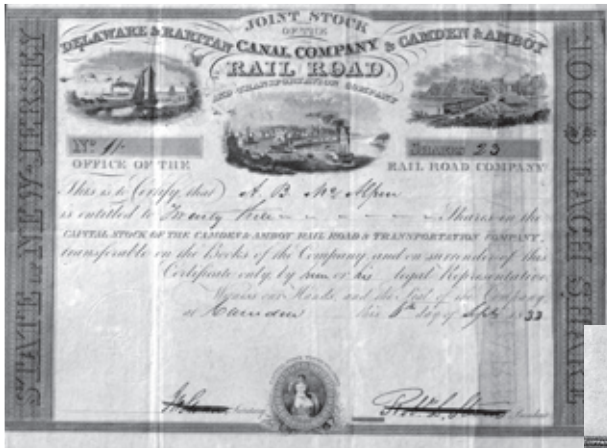 JOINT STOCK
OF THE
DELAWARE & RARITAN CANAL COMPANY & CAMDEN & AMBOY
RAIL ROAD
AND TRANSPORTATION COMPANY
No 11. SHARES 23
OFFICE OF THE RAIL ROAD COMPANY
This is to Certify, that A. B. Mc
is entitled to Twenty three Shares in the
CAPITAL STOCK OF THE CAMDEN & AMBOY RAIL ROAD & TRANSPORTATION COMPANY,
transferable on the Books of the Company and on surrender of this
Certificate only, by him or his legal Representative
Witness our Hands, and the Seal of the Company
at Camden this 6th day of Sept 1833
Secretary President
STATE OF NEW-JERSEY
100 $ EACH SHARE